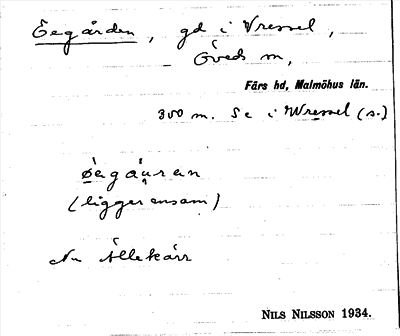 Eegården, gd i Vressel,
Öveds m,
Färs hd, Malmöhus län.
300 m. Se i Wressel (s.)
øegáuran
(ligger ensam)
Nu Ållekärr
NILS NILSSON 1934.